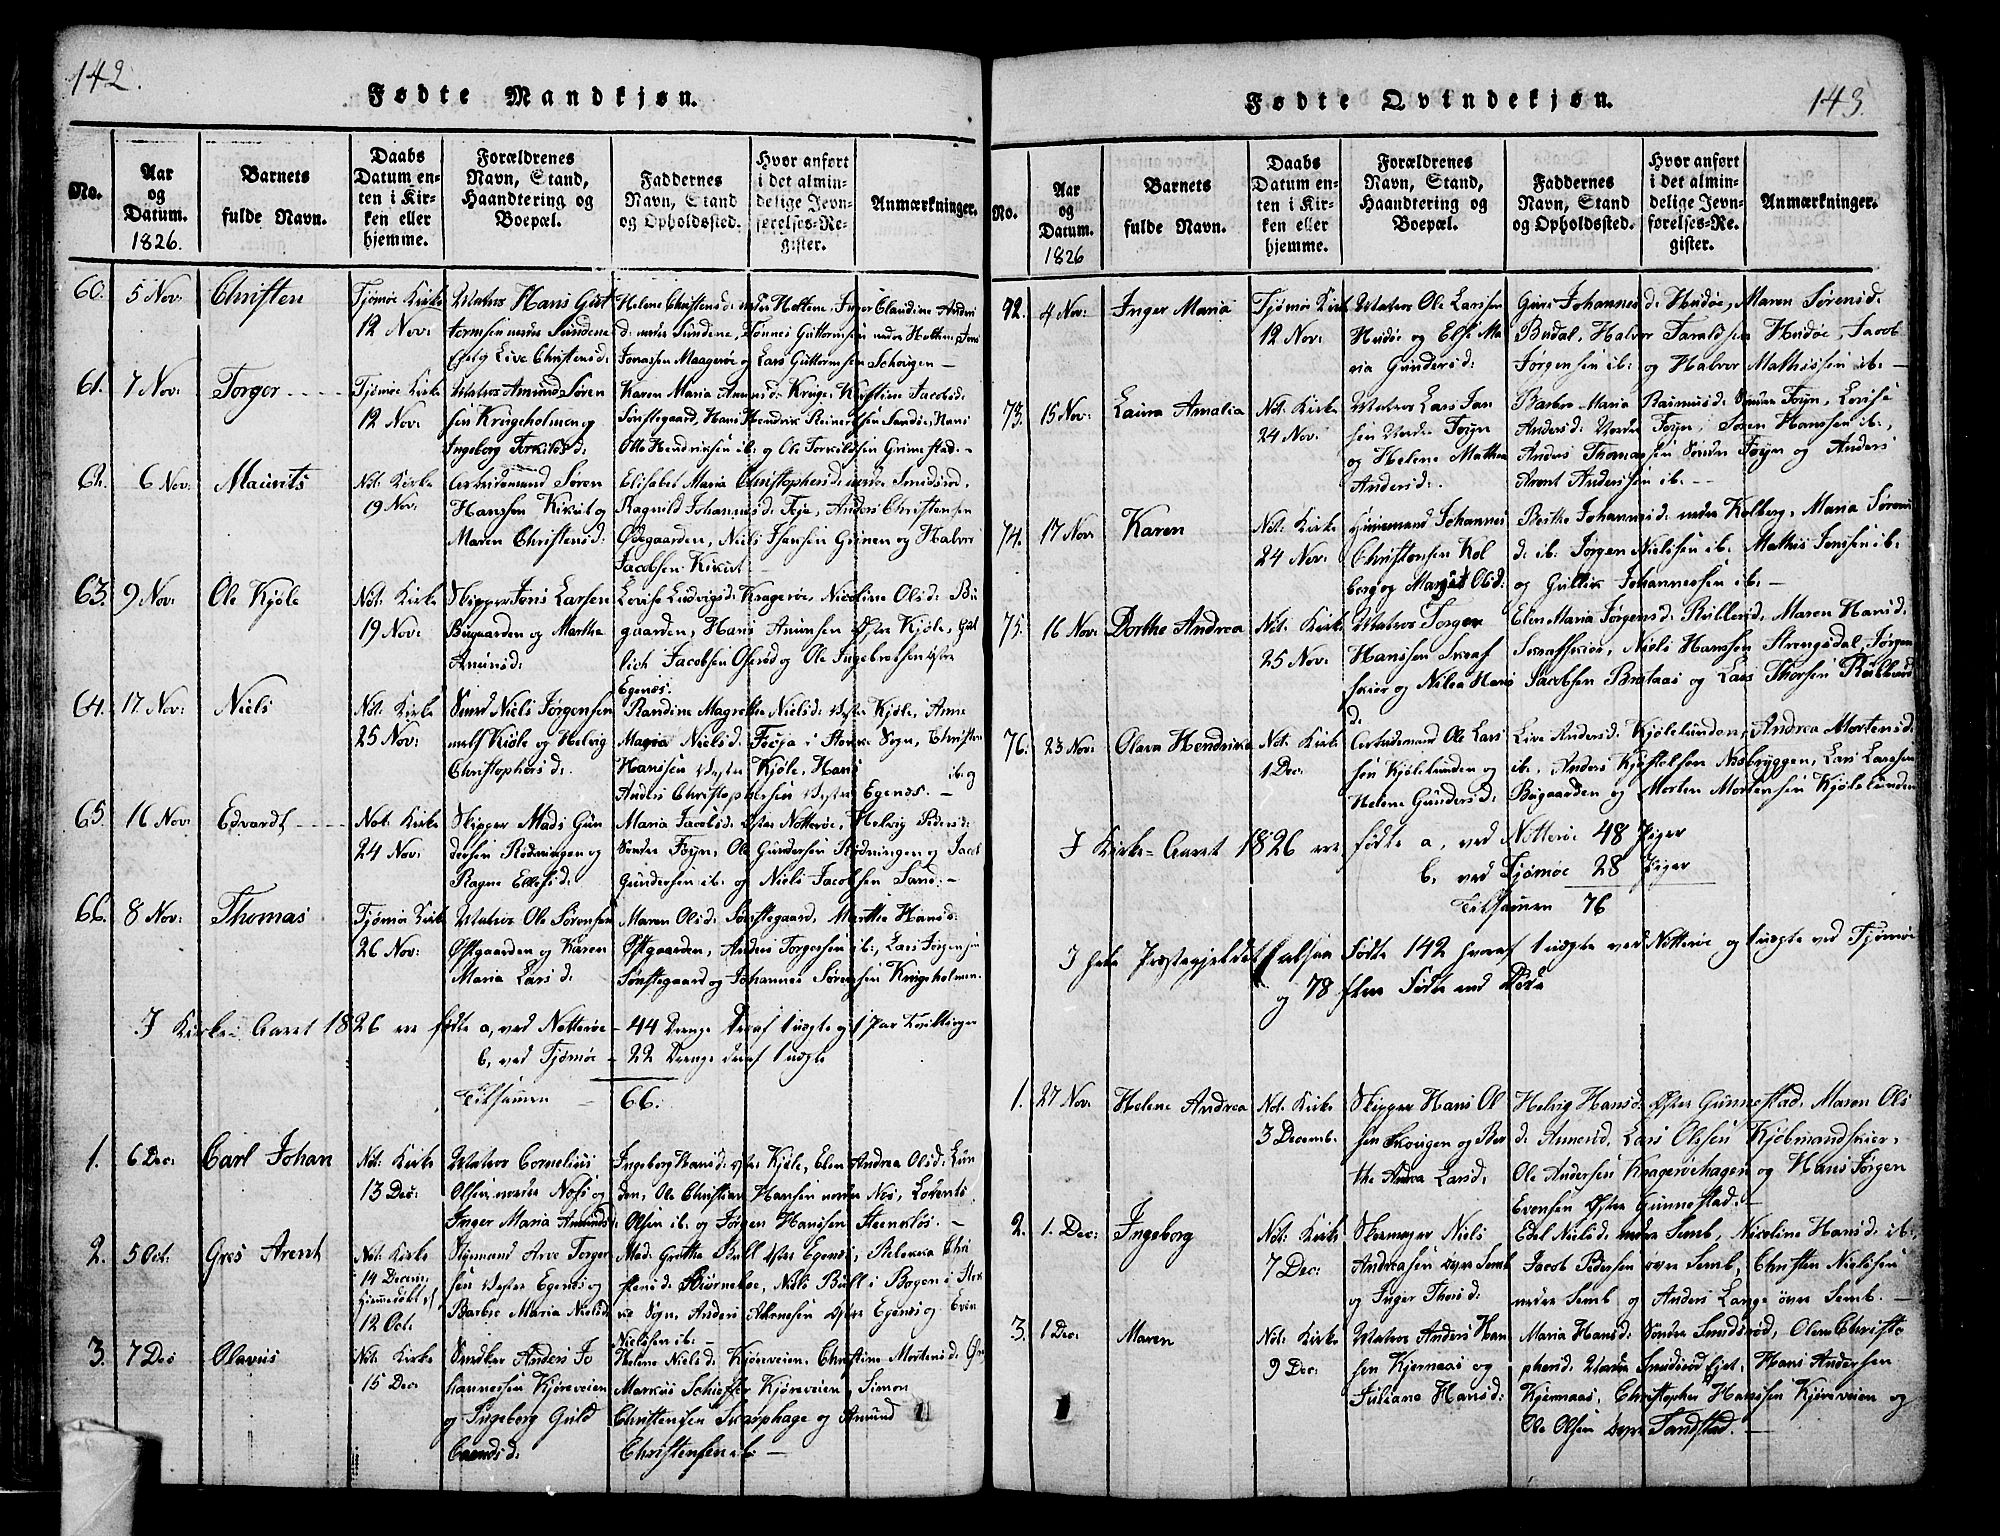 142.
Fødte Mandkjøn.
No.
Aar og Datum. 1826.
Barnets fulde Navn.
Daabs Datum enten i Kirken eller hjemme.
Forældrenes Navn, Stand, Haandtering og Boepæl.
Faddernes Navn, Stand og Opholdssted.
Hvor anført i det almindelige Jevnførelses-Register.
Anmærkninger.
60. 5 Nov: Christen
Tjømøe Kirke
12 Nov:
Matros Hans Gut
tormsen nedre Sundene
Live Christensd:
Helene Christensd: nedre Holtene, Inger Claudine Anders
d: nedre Sundene, Tønnes Guttormsen nedre Holtene, Jens
Jonassen Maagerøe og Lars Guttormsen Schougen –
61. 7 Nov: Torger
Tjømøe Kirke
12 Nov:
Matros Amund Søren
sen Krugeholmen og
Ingeborg Torkilds d:
Karen Maria Amunsd: Kruge, Kirstine Jacobsd:
Sønstegaard, Hans Hendrik Reinertsen Sandøe, Hans
Otto Hendriksen ib: og Ole Torkildsen Grimestad. –
62. 6 Nov: Maurits
Not: Kirke
19 Nov:
Arbeidsmand Søren
Hanssen Kikut og
Maren Christensd:
Elisabet Maria Christophersd: nedre Smidsrød,
Ragnild Johannesd: Teje, Anders Christensen
Ødegaarden, Niels Ifversen Grinen og Halvor
Jacobsen Kikut. –
63. 9 Nov: Ole Kjøle
Not: Kirke
19 Nov:
Skipper Jens Larsen
Bugaarden og Marthe
Amunsd:
Lovise Ludvigsd: Kragerøe, Nicoline Olsd: Bu
gaarden, Hans Amunsen Østre Kjøle, Gul
lich Jacobsen Oserød og Ole Ingebretsen østre
Egenæs.
64. 17 Nov: Niels
Not: Kirke
25 Nov:
Smed Niels Jørgensen
Kjøle og Helvig
Christophersd:
Randine Magrethe Nielsd: Vestre Kjøle, Anne
Maria Nielsd: Feuja i Stokke Sogn, Christen
Hanssen Vestre Kjøle, Hans ib: og
Anders Christophersen Vestre Egenæs. –
65. 16 Nov: Edvardt
Not: Kirke
24 Nov:
Skipper Mads Gun
dersen Rødningen og
Ragne Ellefsd:
Maria Jacobsd: Østre Nøtterøe, Helvig Pedersd:
Søndre Føyn, Ole Gundersen Rødningen og Jacob
Gundersen ib: og Niels Jacobsen Sand: –
66. 8 Nov: Thomas
Tjømøe Kirke
26 Nov:
Matros Ole Sørensen
Østgaarden og Karen
Maria Larsd:
Maren Olsd: Sønstegaard, Marthe Hansd:
Østgaarden, Anders Torgersen ib:, Lars Jørgensen
Sønstegaard og Johannes Sørensen Krugeholmen.
I Kirke-Aaret 1826 ere fødte a, ved Nøtterøe – 44 Drenge deraf 1 uægte og 1 Par Tvillinger
b, ved Tjømøe – 22 Drenge deraf 1 uægte
Tilsammen – 66.
1. 6 Dec: Carl Johan
Not: Kirke
13 Dec:
Matros Cornelius
Olsen nordre Næs og
Inger Maria Amunds
Ingeborg Hansd: vestre Kjøle, Elen Andrea Olsd: Lun
den, Ole Christian Hansen nordre Næs, Lorents
Olsen ib: og Jørgen Hanssen Steenkløs. –
2. 5 Oct: Gres Arent
Not: Kirke
14 Decem:
Hjemmedøbt d.
12 Oct:
Styrmand Arve Torger
sen Vestre Egenes og
Barbro Maria Nielsd:
Mad: Grethe Bull østre Egenes, Rebekka Chri
stensd: Bjørneboe, Niels Bull i Bogen i Stok
ke Sogn, Anders Arnesen Østre Egenes og Even
Nielssen ib: –
3. 7 Dec Olavus
Not: Kirke
15 Dec:
Snedker Anders Jo
hannessen Kjøreveien
og Ingeborg Guld
brandsd:
Helene Nielsd: Kjøreveien, Christine Mortensd:
Markus Schieffer Kjøreveien, Simon
Christensen Skarphage og Amund
Christensen ib: –
143.
Fødte Qvindekjøn.
No.
Aar og Datum. 1826
Barnets fulde Navn.
Daabs Datum enten i Kirken eller hjemme.
Forældrenes Navn, Stand, Haandtering og Boepæl.
Faddernes Navn, Stand og Opholdssted.
Hvor anført i det almindelige Jevnførelses-Register.
Anmærkninger.
72. 4 Nov: Inger Maria
Tjømøe Kirk
12 Nov:
Matros Ole Larssen
Hudøe og Else Ma
ria Gundersd:
Guri Johannesd: Hudøe, Maren Sørensd:
Budal, Halvor Taraldsen Hudøe, Jacob
Jørgensen ib: og Halvor Mathissen ib: –
73. 15 Nov: Laura Amalia
Not: Kirke
24 Nov:
Matros Lars Jan
sen Nordre Føyn
og Helene Mathea
Andersd:
Barbro Maria Rasmusd: Søndre Føyn, Lovise
Andersd: Nordre Føyn, Søren Hanssen ib:,
Anders Thomassen Søndre Føyn og Anders
Arent Anderssen ib: –
74. 17 Nov: Karen
Not: Kirke
24 Nov:
Huusmand Johannes
Christensen Kol
berg og Margit Olsd:
Berthe Johannesd: nedre Kolberg, Maria Sørens
d: ib: Jørgen Nielssen ib: Mathis Jenssen ib:
og Gullik Johannessen ib: –
75. 16 Nov: Dorthe Andrea
Not: Kirke
25 Nov:
Matros Torger
Hanssen Skraf
skier og Nilea Hans
d:
Elen Maria Jørgensd: Rublerød, Maren Hansd:
Skrafskiær, Niels Hanssen Strengsdal, Jørgen
Jacobsen Brataas og Lars Thorsen Rublerød
76. 23 Nov: Olava Hendrikke
Not: Kirke
1 Dec:
Arbeidsmand Ole Lars
sen Kjølelunden og
Helene Gundersd:
Live Andersd: Kjølelunden, Andrea Mortensd:
ib:, Anders Kjostelsen Næsbryggen, Lars Larssen
Bugaarden og Morten Mortensen Kjølelunden
I Kirke-Aaret 1826 ere fødte a, ved Nøtterøe 48 Piger
b, ved Tjømøe 28 Piger
Tilsammen 76
I hele Præstegjeldet altsaa Fødte 142 hvoraf 1 uægte ved Nøtterøe og 1 uægte ved Tjømøe
og 78 flere Fødte end Døde
1. 27 Nov: Helene Andrea
Not: Kirke
3 Decemb.
Skipper Hans Ol
sen Skougen og Ber
the Andrea Larsd:
Helvig Hansd: Østre Gunnestad, Maren Ols
d: Aunerød, Lars Olssen Kjøbmandskier,
Ole Andersen Kragerøehagen og Hans Jørgen
Evensen Østre Gunnestad. –
2. 1. Dec: Ingeborg
Not: Kirke
7 Dec:
Skomager Niels
Andreasen øvre Semb
og Inger Thorsd:
Edel Nielsd: nedre Semb, Nicoline Hansd: ib:
Jacob Pedersen øvre Semb, Christen Nielssen
nedre Semb og Anders Lange øvre Semb. –
3. 1 Dec: Maren
Not: Kirke
9 Dec:
Matros Anders Han
sen Kjernaas og
Juliane Hansd:
Maria Hansd: Søndre Smidsrød, Olava Christo
phersd: Nordre Smidsrød Ejet, Hans Andersen
Kjernaas, Christopher Hanssen Kjøreveien og
Ole Olsen Sandstad. –